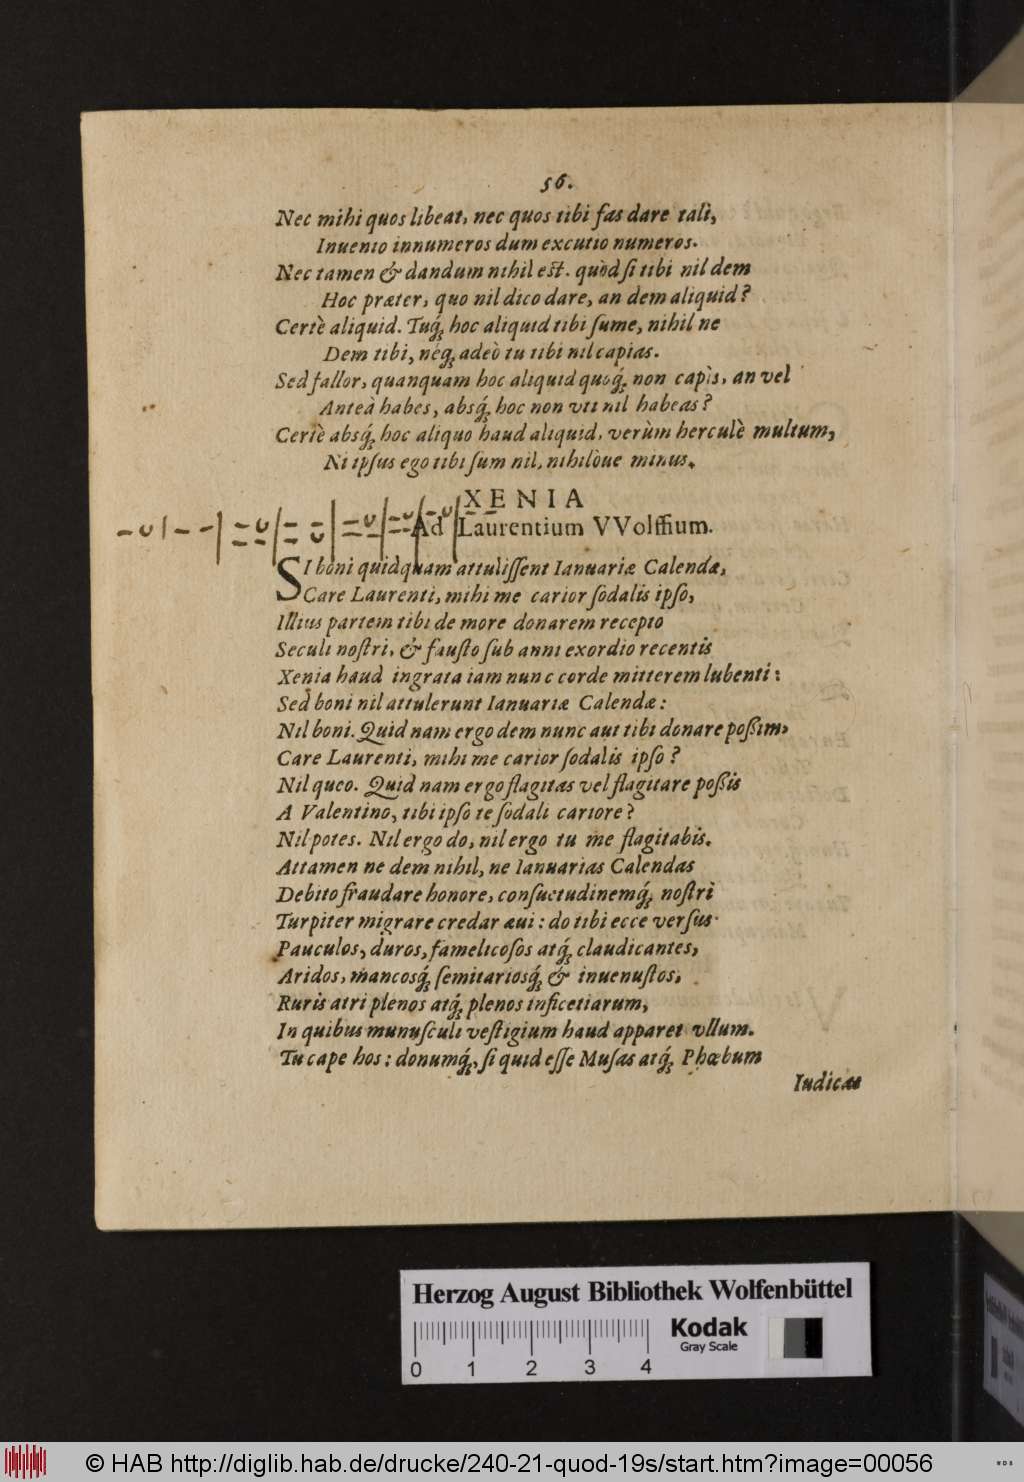 56.
Nec mihi quos libeat, nec quos tibi fas dare tali,
Inuenio innumeros dum excutio numeros.
Nec tamen & dandum nihil est. quòd si tibi nil dem
Hoc præter, quo nil dico dare, an dem aliquid?
Certè aliquid. Tuq́; hoc aliquid tibi sume, nihil ne
Dem tibi, néq; adeò tu tibi nil capias.
Sed fallor, quanquam hoc aliquid quoq́; non capis, an vel
Anteà habes, absq́; hoc non vti nil habeas?
Certè absq́; hoc aliquo haud aliquid, verùm herculè multum,
Ni ipsus ego tibi sum nil, nihilòue minus.
XENIA
Ad Laurentium VVolffium.
SI boni quidquam attulissent Ianuariæ Calendæ,
Care Laurenti, mihi me carior sodalis ipso,
Illius partem tibi de more donarem recepto
Seculi nostri, & fausto sub anni exordio recentis
Xenia haud ingrata iam nunc corde mitterem lubenti:
Sed boni nil attulerunt Ianuariæ Calendæ:
Nil boni. Quid nam ergo dem nunc aut tibi donare possim,
Care Laurenti, mihi me carior sodalis ipso?
Nil queo. Quid nam ergo flagitas vel flagitare possis
A Valentino, tibi ipso te sodali cariore?
Nil potes. Nil ergo do, nil ergo tu me flagitabis.
Attamen ne dem nihil, ne Ianuarias Calendas
Debito fraudare honore, consuetudinemq́; nostri
Turpiter migrare credar æui: do tibi ecce versus
Pauculos, duros, famelicosos atq́; claudicantes,
Aridos, mancosq́; semitariosq́; & inuenustos,
Ruris atri plenos atq́; plenos inficetiarum,
In quibus munusculi vestigium haud apparet vllum.
Tu cape hos: donumq́;, si quid esse Musas atq́; Phœbum
Iudicas
Herzog August Bibliothek Wolfenbüttel
0 1 2 3 4
Kodak
Gray Scale
© HAB http://diglib.hab.de/drucke/240-21-quod-19s/start.htm?image=00056